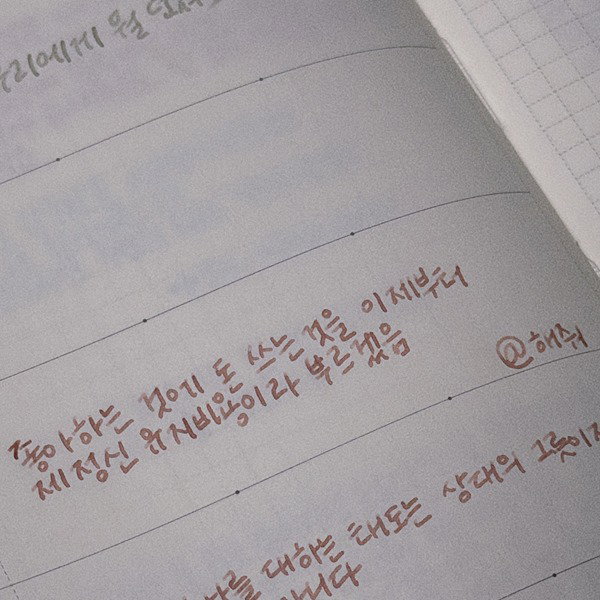 우리에게 월
좋아하는 것에 돈 쓰는 것을 이제부터
제정신 유지비용이라 부르겠음
@해숴
를 대하는 태도는 상대의 그릇이지
합니다